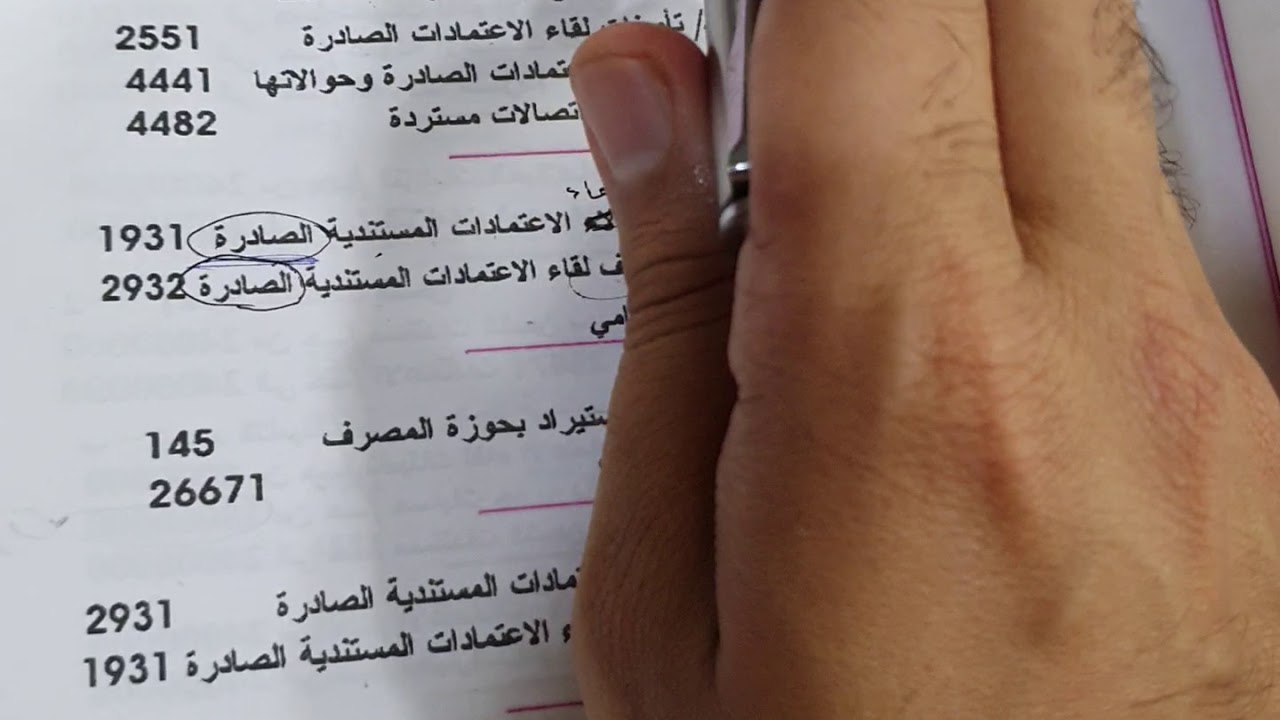 / تأمينات لقاء الاعتمادات الصادرة 2551
تمادات الصادرة وحوالاتها 4441
تصالات مستردة 4482
الاعتمادات المستندية الصادرة 1931
ف لقاء الاعتمادات المستندية الصادرة 2932
امي
ستيراد بحوزة المصرف 145
26671
مادات المستندية الصادرة 2931
ء الاعتمادات المستندية الصادرة 1931